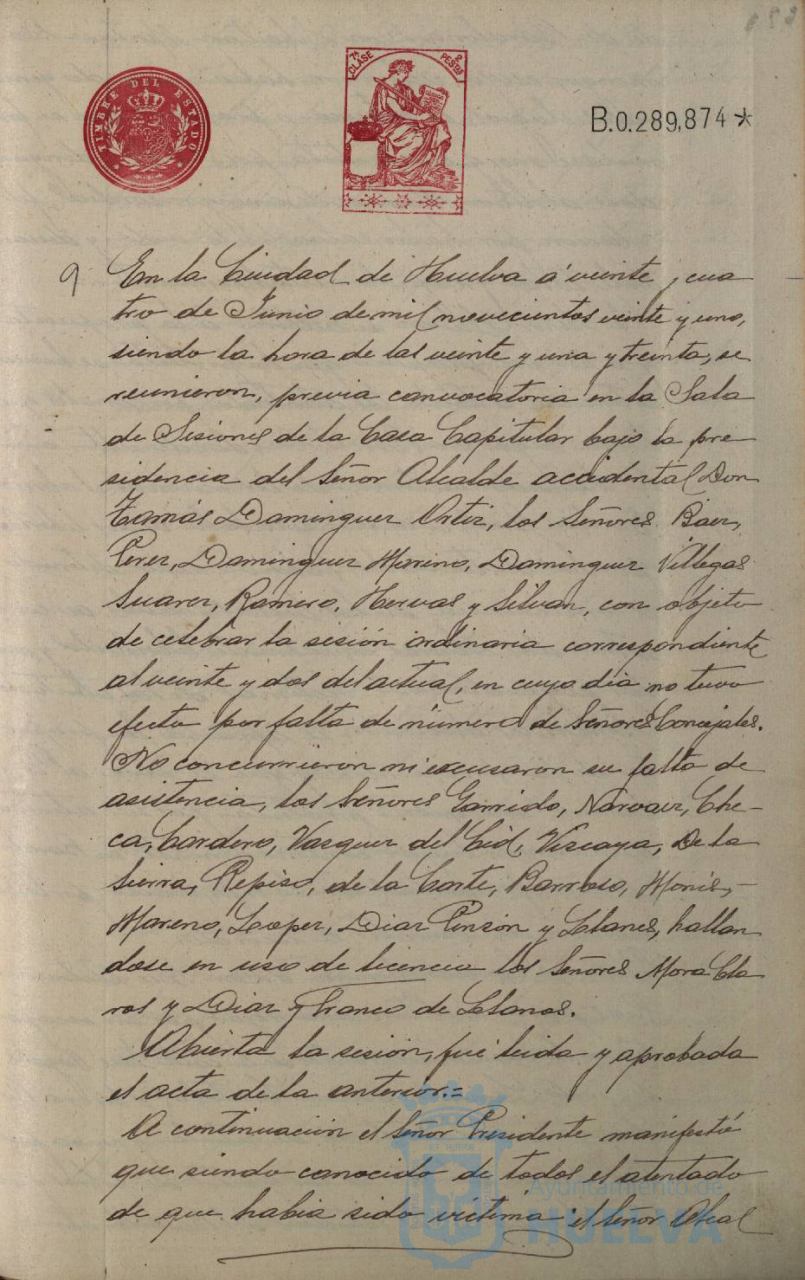 TIMBRE DEL ESTADO
7ª CLASE
2 PESETAS
B.0.289,874*
9 En la Ciudad de Huelva á veinte y cua
tro de Junio de mil novecientos veinte y uno,
siendo la hora de las veinte y una y treinta, se
reunieron, previa convocatoria en la Sala
de Sesiones de la Casa Capitular bajo la pre
sidencia del Señor Alcalde accidental Don
Tomás Dominguez Ortiz, los Señores Baez,
Perez, Dominguez Marino, Dominguez Villegas
Suarez, Romero, Hervas y Silvan, con objeto
de celebrar la sesión ordinaria correspondiente
al veinte y dos del actual, en cuyo dia no tuvo
efecto por falta de número de Señores Concejales.
No concurrieron ni excusaron su falta de
asistencia, los Señores Garrido, Narvaez, Che-
ca, Cordero, Vazquez del Cid, Vizcaya, De la
Sierra, Repiso, de la Corte, Barroso, Monis,-
Moreno, Lopez, Diaz Pinzón y Llanes, hallan
dose en uso de licencia los Señores Mora Cla
ros y Diaz y Franco de Llanos.
Abierta la sesión, fué leida y aprobada
el acta de la anterior.=
A continuación el Señor Presidente manifestó
que siendo conocido de todos el atentado
de que habia sido victima el Señor Alcal
Ayuntamiento de
HUELVA